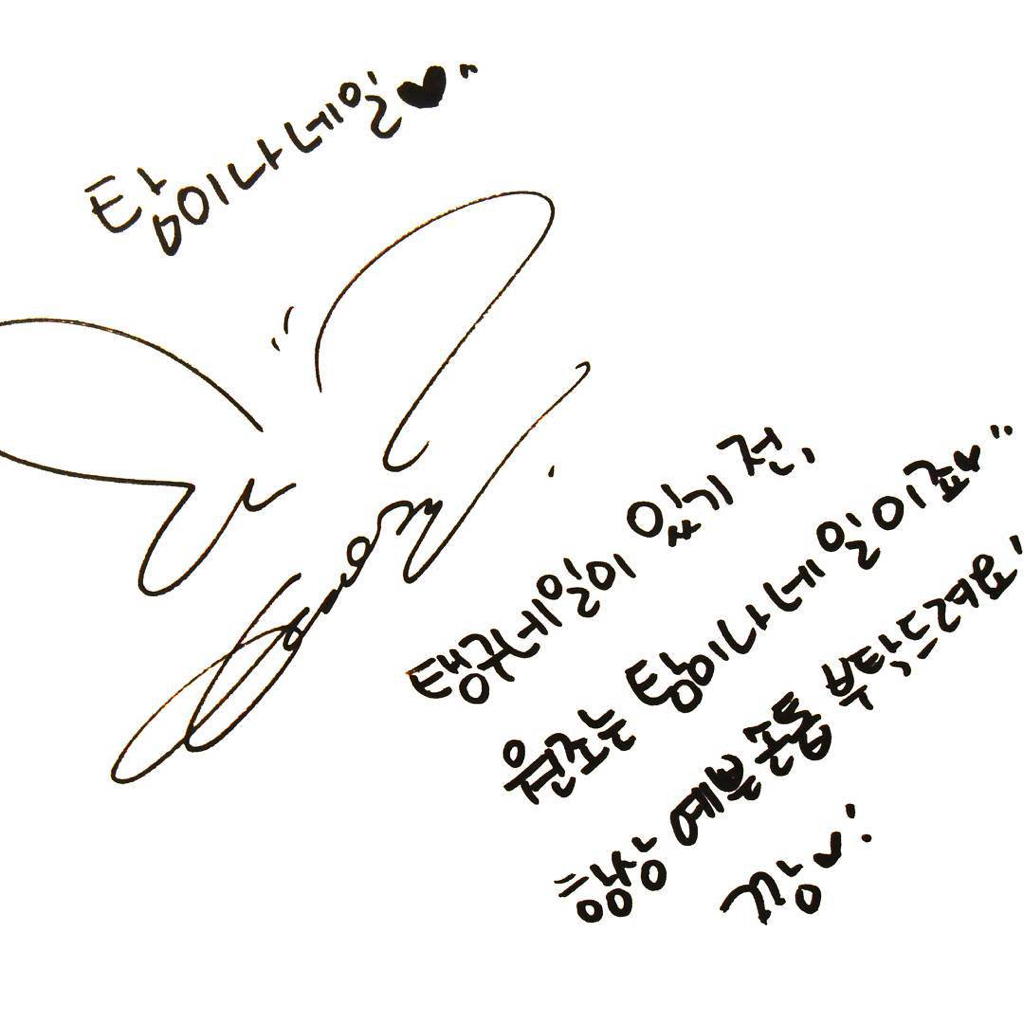 탐이나네일♥"
탱귀네일이 있기 전,
원조는 탐이나네일이죠♥"
항상 예쁜손톱 부탁드려요!
짱♥!